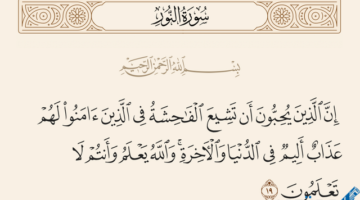 سُورَةُ النُّورِ
بِسْمِ اللَّهِ الرَّحْمَٰنِ الرَّحِيمِ
إِنَّ الَّذِينَ يُحِبُّونَ أَن تَشِيعَ الْفَاحِشَةُ فِي الَّذِينَ ءَامَنُوا۟ لَهُمْ
عَذَابٌ أَلِيمٌ فِي الدُّنْيَا وَالْآخِرَةِ ۚ وَاللَّهُ يَعْلَمُ وَأَنتُمْ لَا
تَعْلَمُونَ ١٩